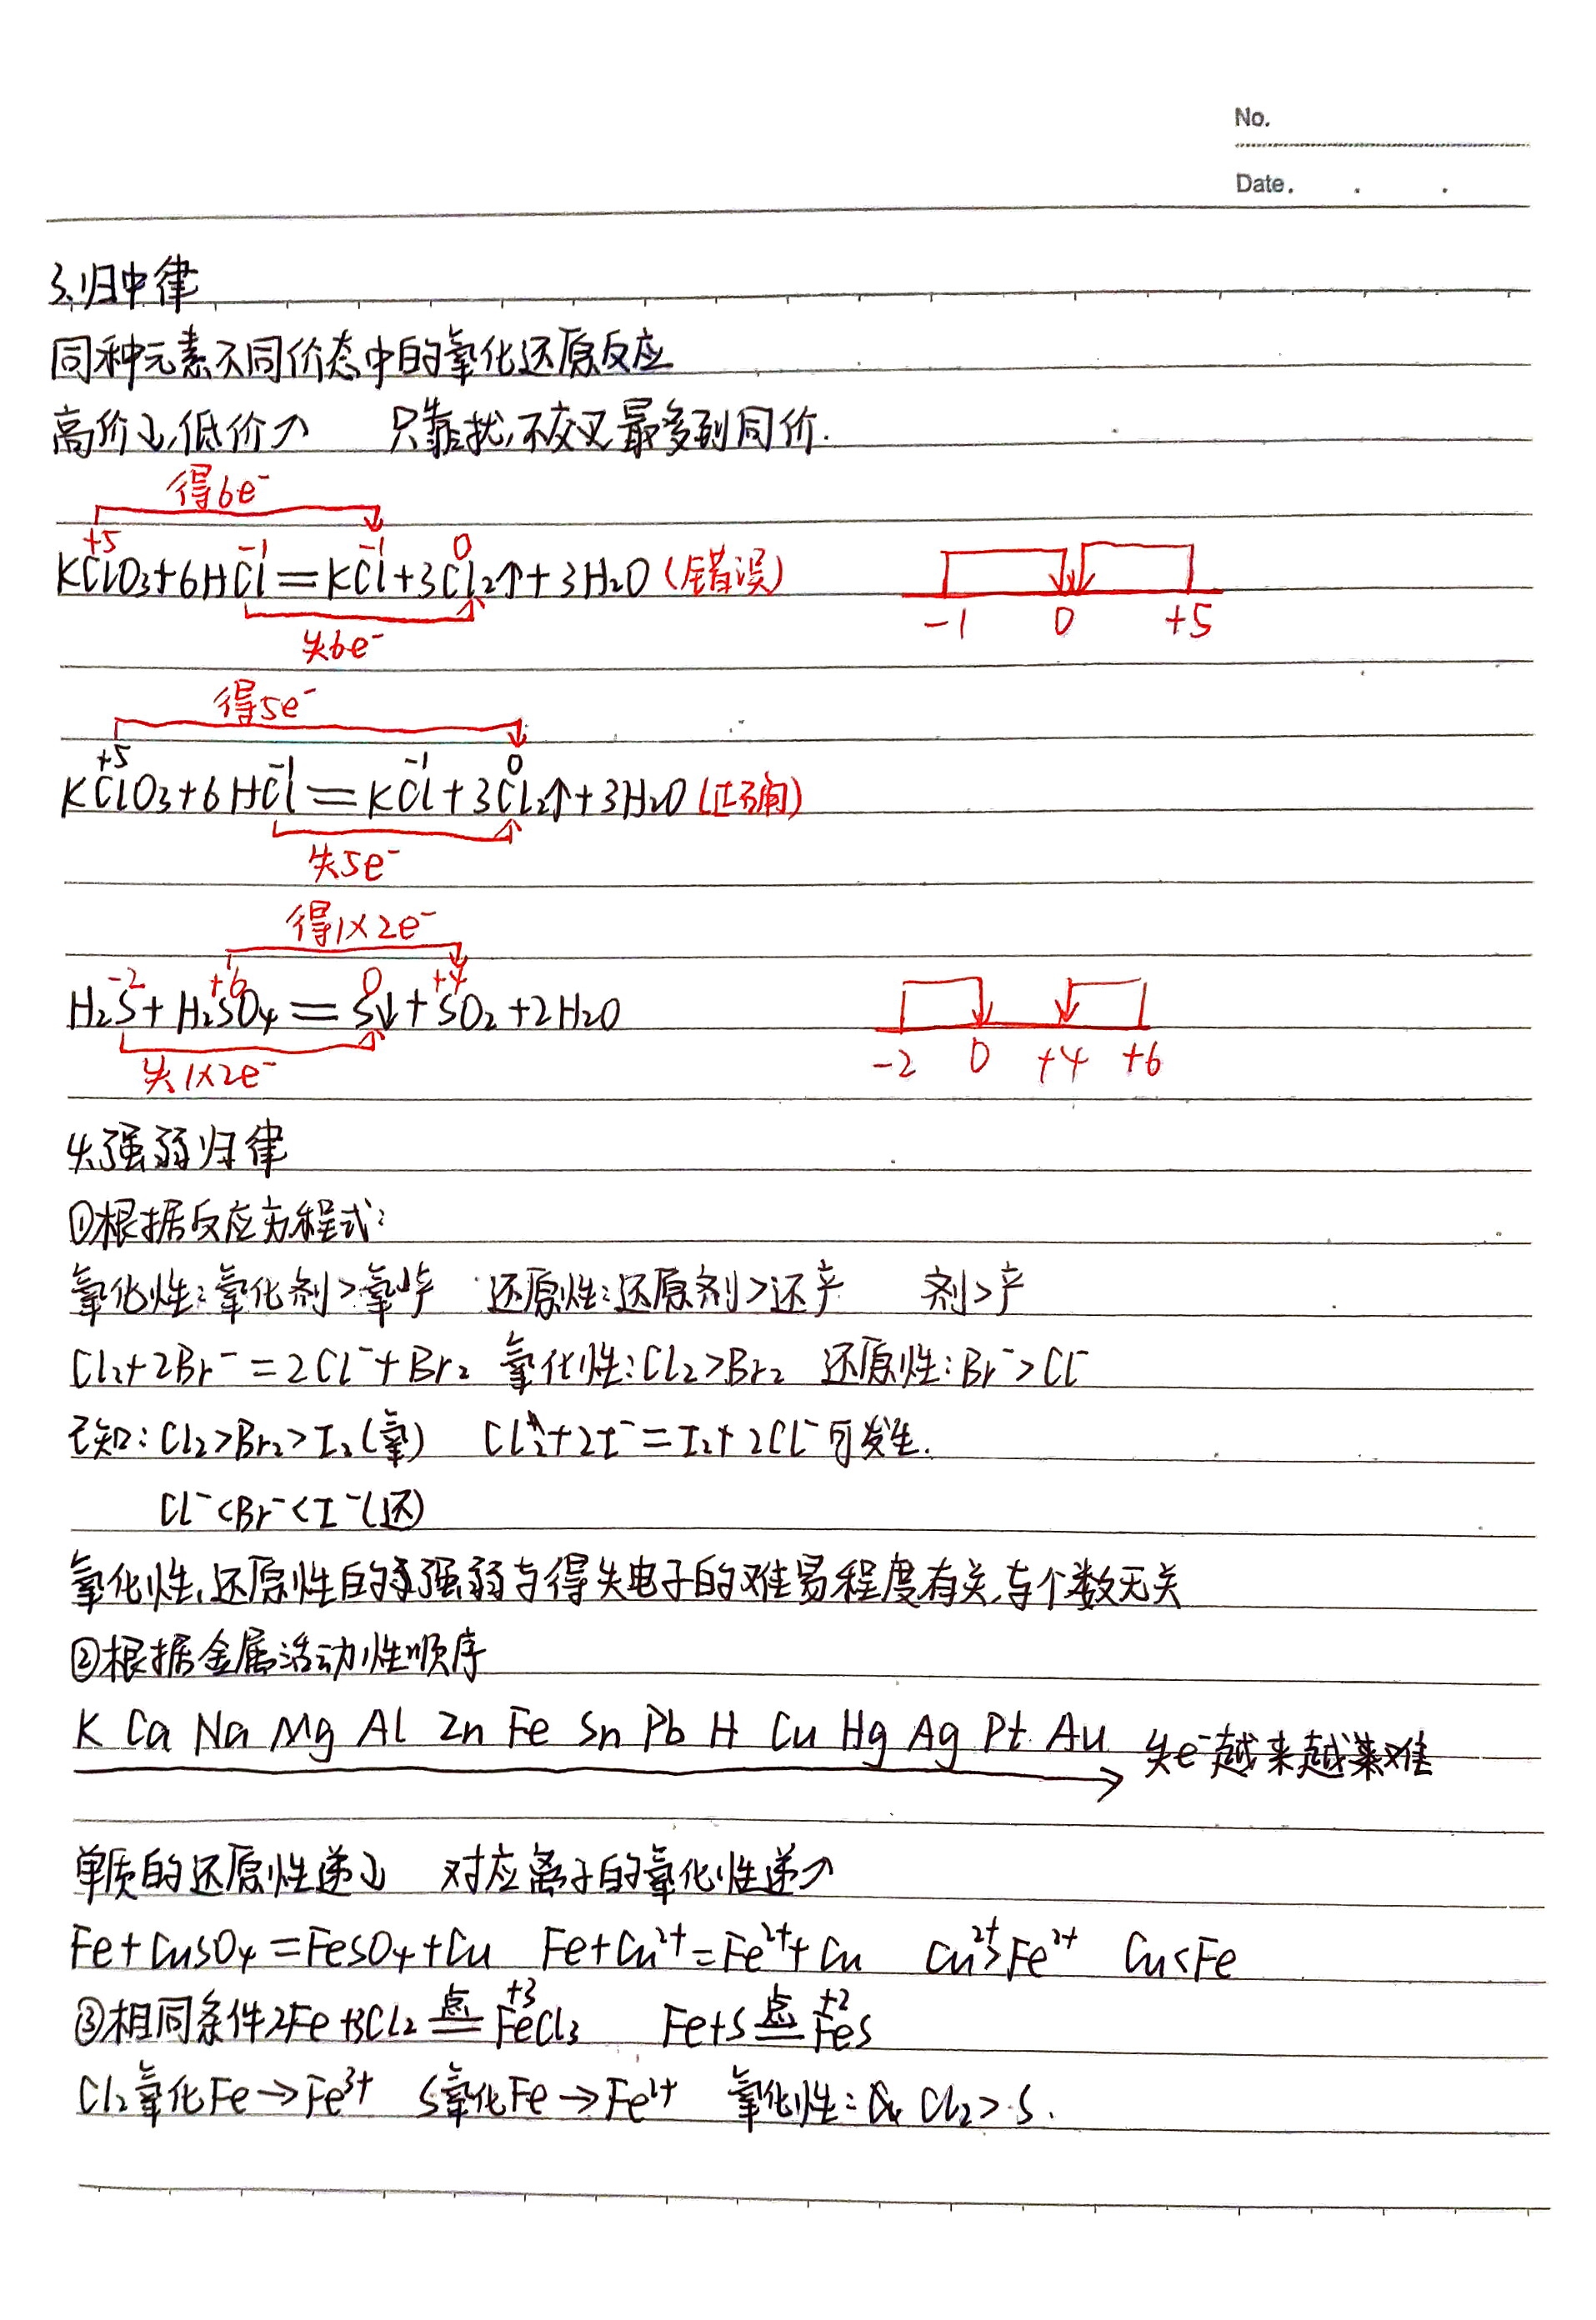 No.
Date. . .
3.归中律
同种元素不同价态中的氧化还原反应
高价↓,低价↗ 只靠拢,不交叉 最多到同价.
得6e⁻
+5 -1 -1 0
KClO₃+6HCl=KCl+3Cl₂↑+3H₂O(错误)
-1 0 +5
失6e⁻
得5e⁻
+5 -1 -1 0
KClO₃+6HCl=KCl+3Cl₂↑+3H₂O(正确)
失5e⁻
得1×2e⁻
-2 +6 0 +4
H₂S+H₂SO₄=S↓+SO₂+2H₂O
-2 0 +4 +6
失1×2e⁻
4.强弱归律
①根据反应方程式:
氧化性:氧化剂>氧产 还原性:还原剂>还产 剂>产
Cl₂+2Br⁻=2Cl⁻+Br₂ 氧化性:Cl₂>Br₂ 还原性:Br⁻>Cl⁻
已知:Cl₂>Br₂>I₂(氧) Cl₂+2I⁻=I₂+2Cl⁻可发生.
Cl⁻<Br⁻<I⁻(还)
氧化性,还原性的强弱与得失电子的难易程度有关,与个数无关
②根据金属活动性顺序
K Ca Na Mg Al Zn Fe Sn Pb H Cu Hg Ag Pt Au 失e⁻越来越难
单质的还原性递↓ 对应离子的氧化性递↗
Fe+CuSO₄=FeSO₄+Cu Fe+Cu²⁺=Fe²⁺+Cu Cu²⁺>Fe²⁺ Cu<Fe
+3 +2
③相同条件2Fe+3Cl₂点=FeCl₃ Fe+S点=FeS
Cl₂氧化Fe→Fe³⁺ S氧化Fe→Fe²⁺ 氧化性: Cl₂>S.